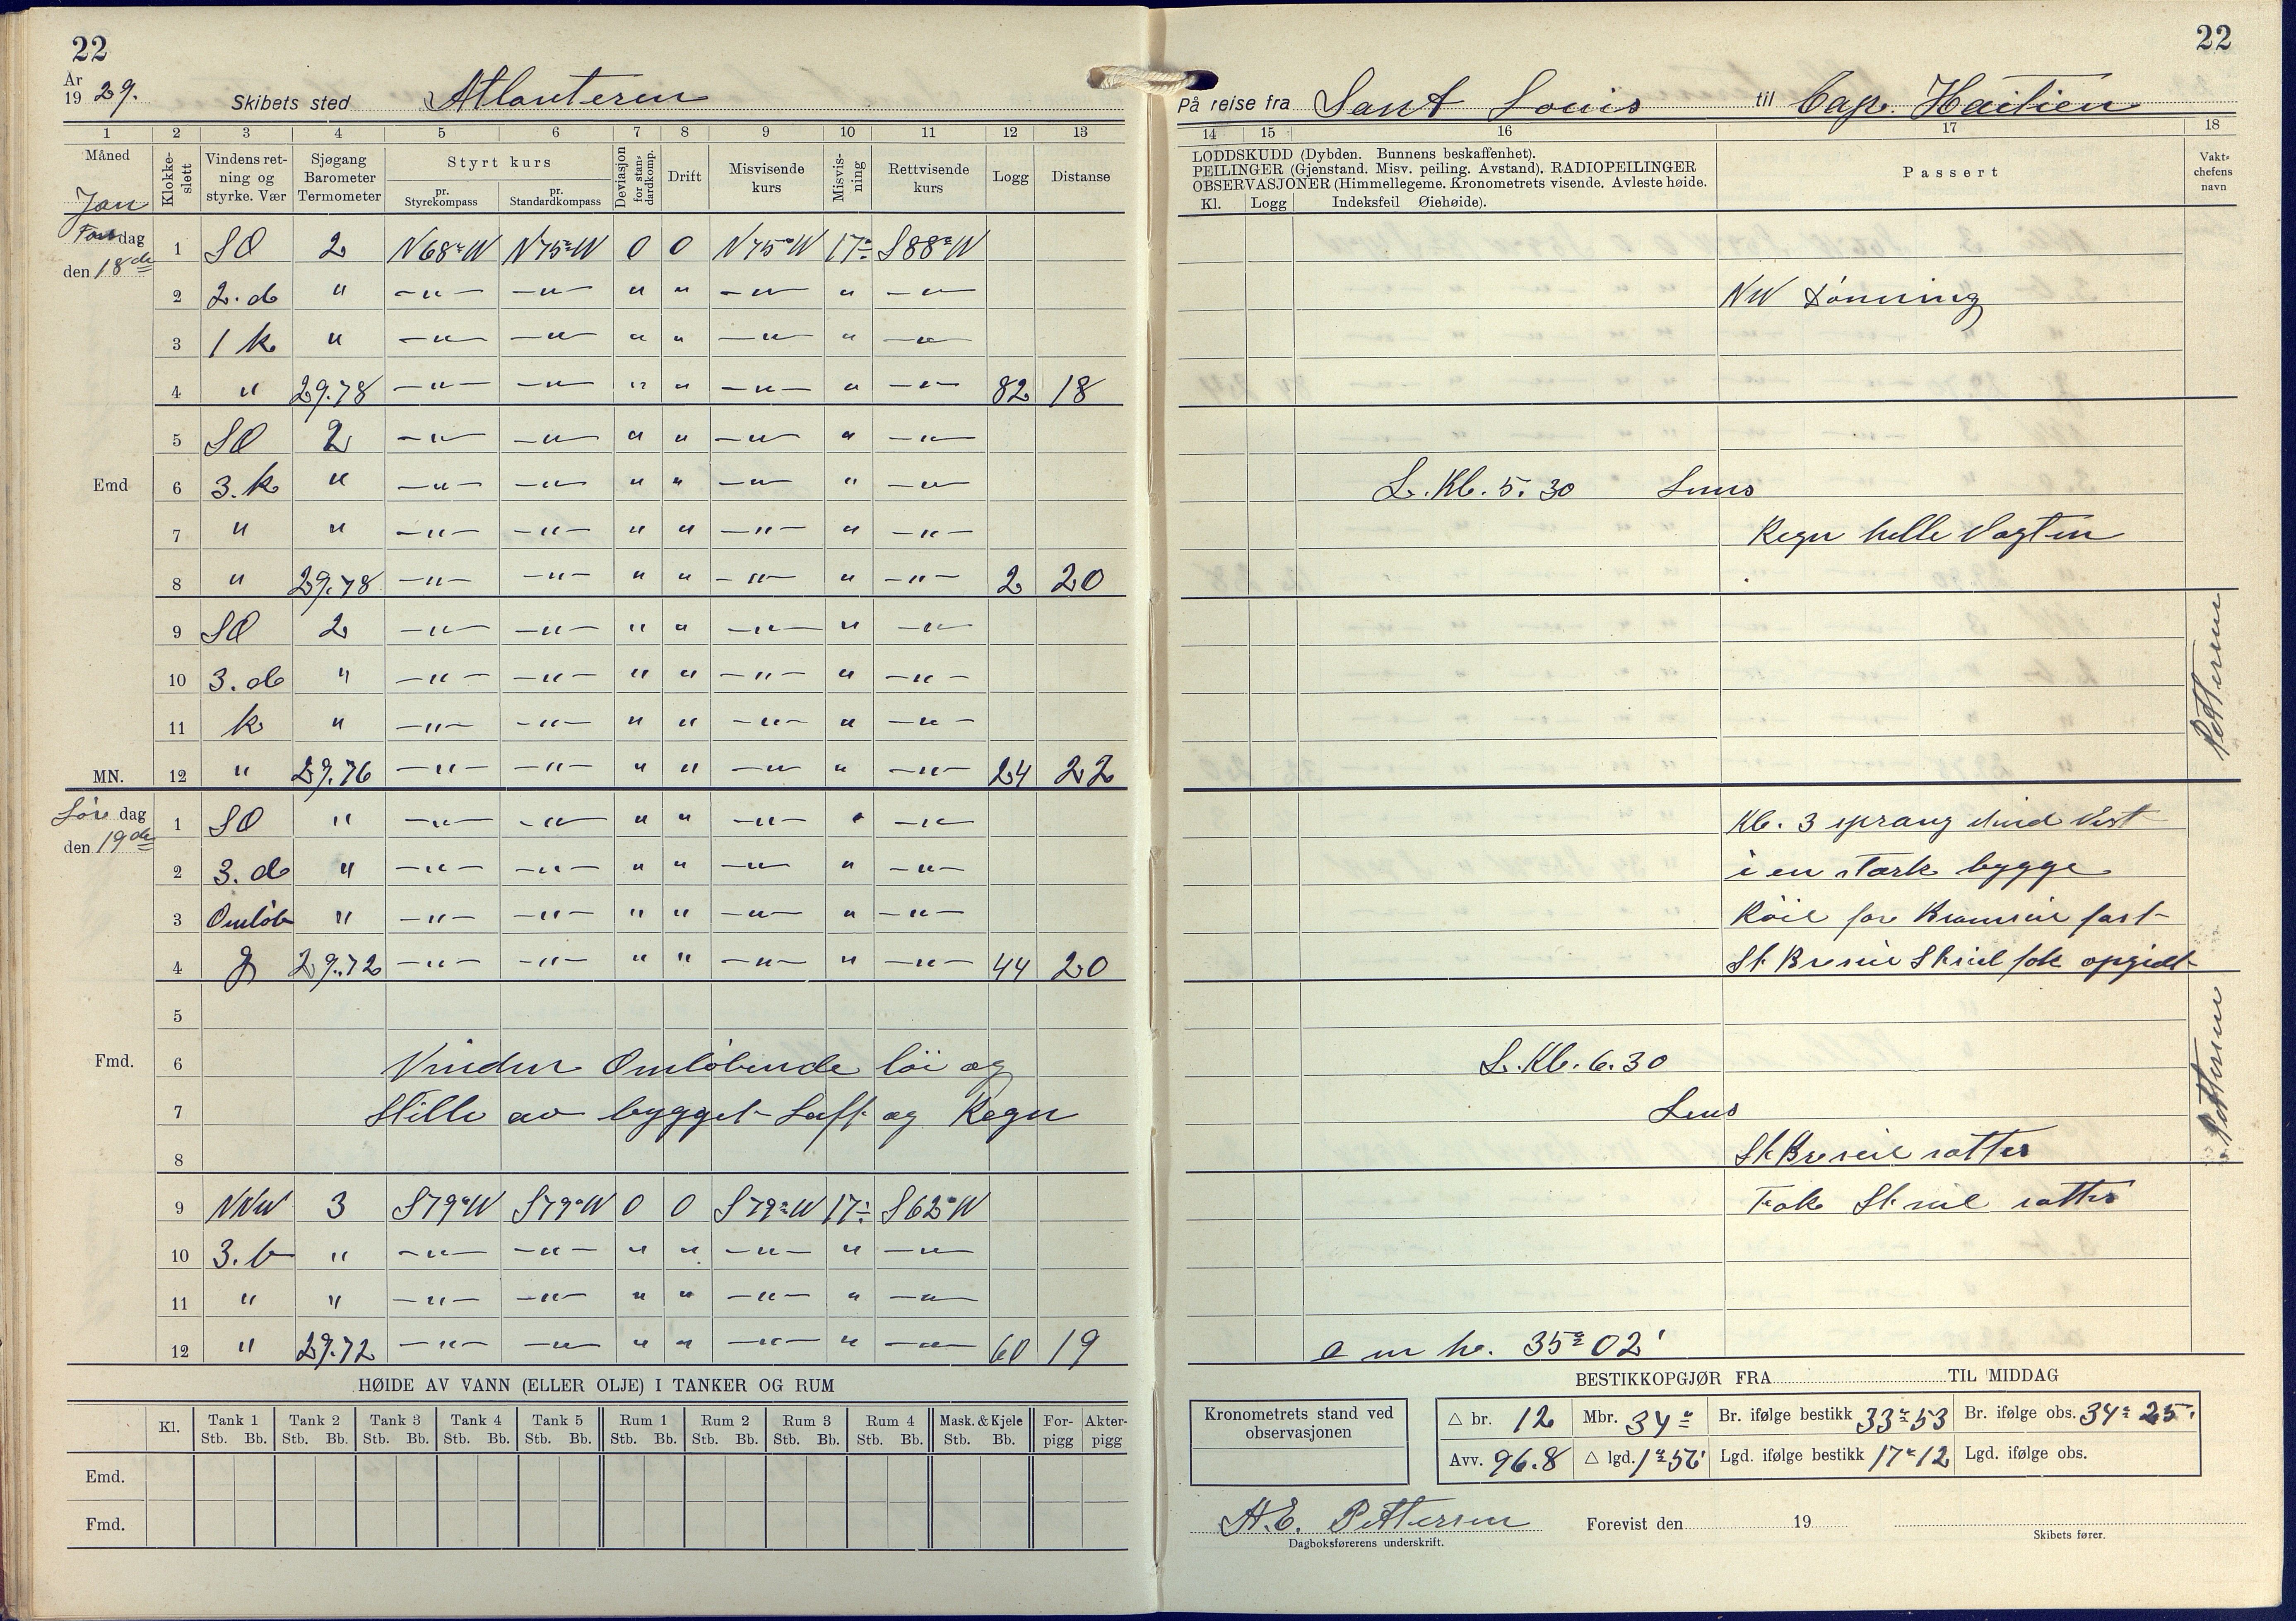 22
År 1929. Skibets sted Atlanteren
1 2 3 4 5 6 7 8 9 10 11 12 13
Måned Klokkeslett Vindens retning og styrke. Vær Sjøgang Barometer Termometer Styrt kurs pr. Styrekompass pr. Standardkompass Deviasjon for standardkomp. Drift Misvisende kurs Misvisning Rettvisende kurs Logg Distanse
Jan
dag den 18de
1 SO 2 N68°W N75°W 0 0 N75°W 17° S88°W
2 2. d " —"— —"— " " —"— " —"—
3 1 k " —"— —"— " " —"— " —"—
4 " 29.78 —"— —"— " " —"— " —"— 82 18
5 SO 2 —"— —"— " " —"— " —"—
Emd 6 3. k " —"— —"— " " —"— " —"—
7 " " —"— —"— " " —"— " —"—
8 " 29.78 —"— —"— " " —"— " —"— 2 20
9 SO 2 —"— —"— " " —"— " —"—
10 3. d " —"— —"— " " —"— " —"—
11 k " —"— —"— " " —"— " —"—
MN. 12 " 29.76 —"— —"— " " —"— " —"— 24 22
Lør dag den 19de
1 SO " —"— —"— " " —"— " —"—
2 3. d " —"— —"— " " —"— " —"—
3 Omløb " —"— —"— " " —"— " —"—
4 29.72 —"— —"— " " —"— " —"— 44 20
5
Fmd. 6 Vinden Omløbende löi og
7 Stille av bygget Luft og Regn
8
9 NNW 3 S79°W S79°W 0 0 S79°W 17° S62°W
10 3. b " —"— —"— " " —"— " —"—
11 " " —"— —"— " " —"— " —"—
12 " 29.72 —"— —"— " " —"— " —"— 60 19
HØIDE AV VANN (ELLER OLJE) I TANKER OG RUM
Kl. Tank 1 Stb. Bb. Tank 2 Stb. Bb. Tank 3 Stb. Bb. Tank 4 Stb. Bb. Tank 5 Stb. Bb. Rum 1 Stb. Bb. Rum 2 Stb. Bb. Rum 3 Stb. Bb. Rum 4 Stb. Bb. Mask. & Kjele Stb. Bb. Forpigg Akterpigg
Emd.
Fmd.
22
På reise fra Sant Louis til Cap. Haitien
14 15 16 17 18
LODDSKUDD (Dybden. Bunnens beskaffenhet).
PEILINGER (Gjenstand. Misv. peiling. Avstand). RADIOPEILINGER
OBSERVASJONER (Himmellegeme. Kronometrets visende. Avleste høide.
Kl. Logg Indeksfeil Øiehøide).
Passert
Vaktchefens navn
NW Dönning
L. Kl. 5.30 Lens
Regn helle Vagten
Pettersen
Kl. 3 sprang Vind Vest
i en stærk bygge
Röil for Bramseil fast
St Breseil Stseil fok opgidt
L. Kl. 6.30
Lens
Pettersen
St Breseil satter
Fok St seil satter
a m hø. 35° 02'
BESTIKKOPGJØR FRA TIL MIDDAG
Kronometrets stand ved observasjonen
△ br. 12 Mbr. 34° Br. ifølge bestikk 33° 53 Br. ifølge obs. 34° 25'
Avv. 96.8 △ lgd. 1° 56' Lgd. ifølge bestikk 17° 12 Lgd. ifølge obs.
H.E. Pettersen Forevist den 19
Dagboksførerens underskrift. Skibets fører.